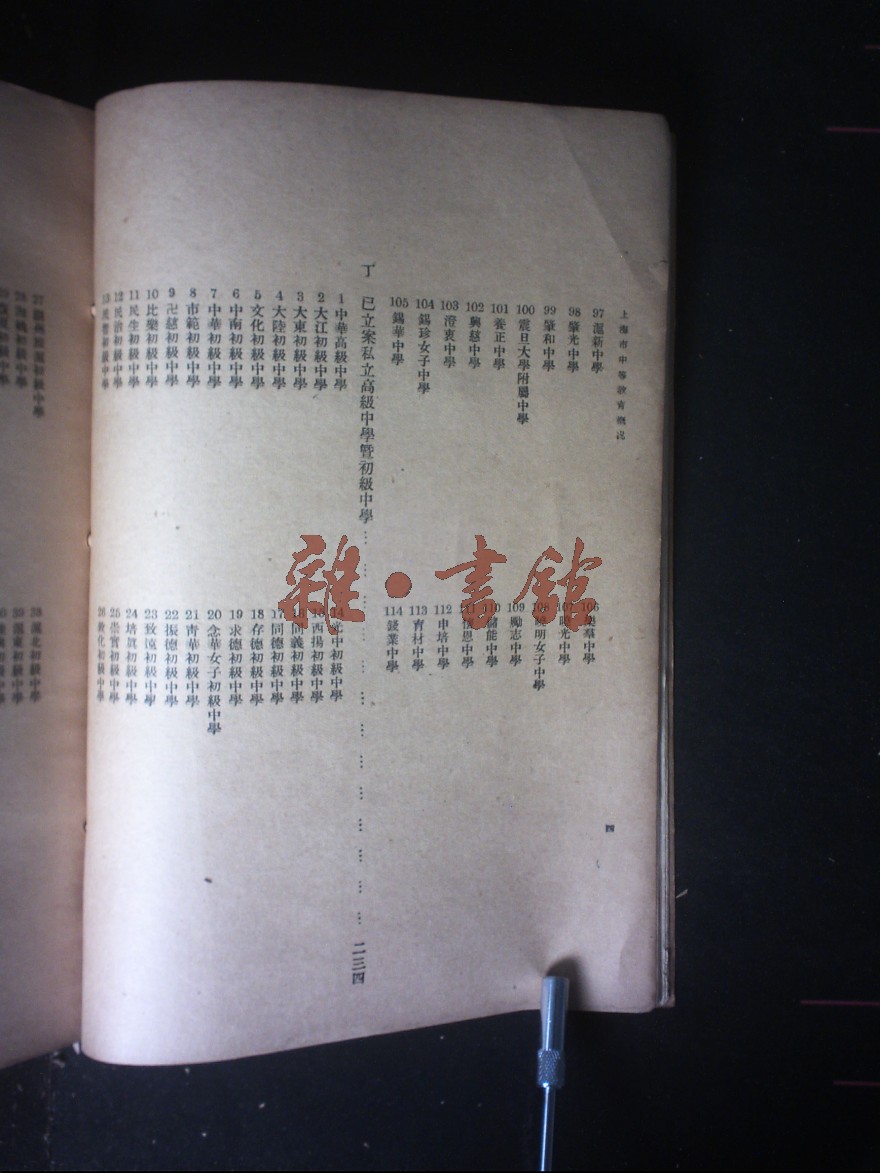 上海市中等教育概況
97 滬新中學
98 肇光中學
99 肇和中學
100 震旦大學附屬中學
101 養正中學
102 興慈中學
103 澄衷中學
104 錫珍女子中學
105 錫華中學
106 樂羣中學
107 曉光中學
108 曉明女子中學
109 勵志中學
110 儲能中學
111 懷恩中學
112 申培中學
113 育材中學
114 錢業中學
丁 已立案私立高級中學暨初級中學 二三四
1 中華高級中學
2 大江初級中學
3 大東初級中學
4 大陸初級中學
5 文化初級中學
6 中南初級中學
7 中華初級中學
8 市範初級中學
9 卍慈初級中學
10 比樂初級中學
11 民生初級中學
12 民治初級中學
13 民智初級中學
14 光中初級中學
15 西揚初級中學
16 同義初級中學
17 同德初級中學
18 存德初級中學
19 求德初級中學
20 念華女子初級中學
21 青華初級中學
22 振德初級中學
23 致遠初級中學
24 培眞初級中學
25 崇實初級中學
26 敦化初級中學
四
27 初級中學
38 滬北初級中學
39 滬東初級中學
雜·書館